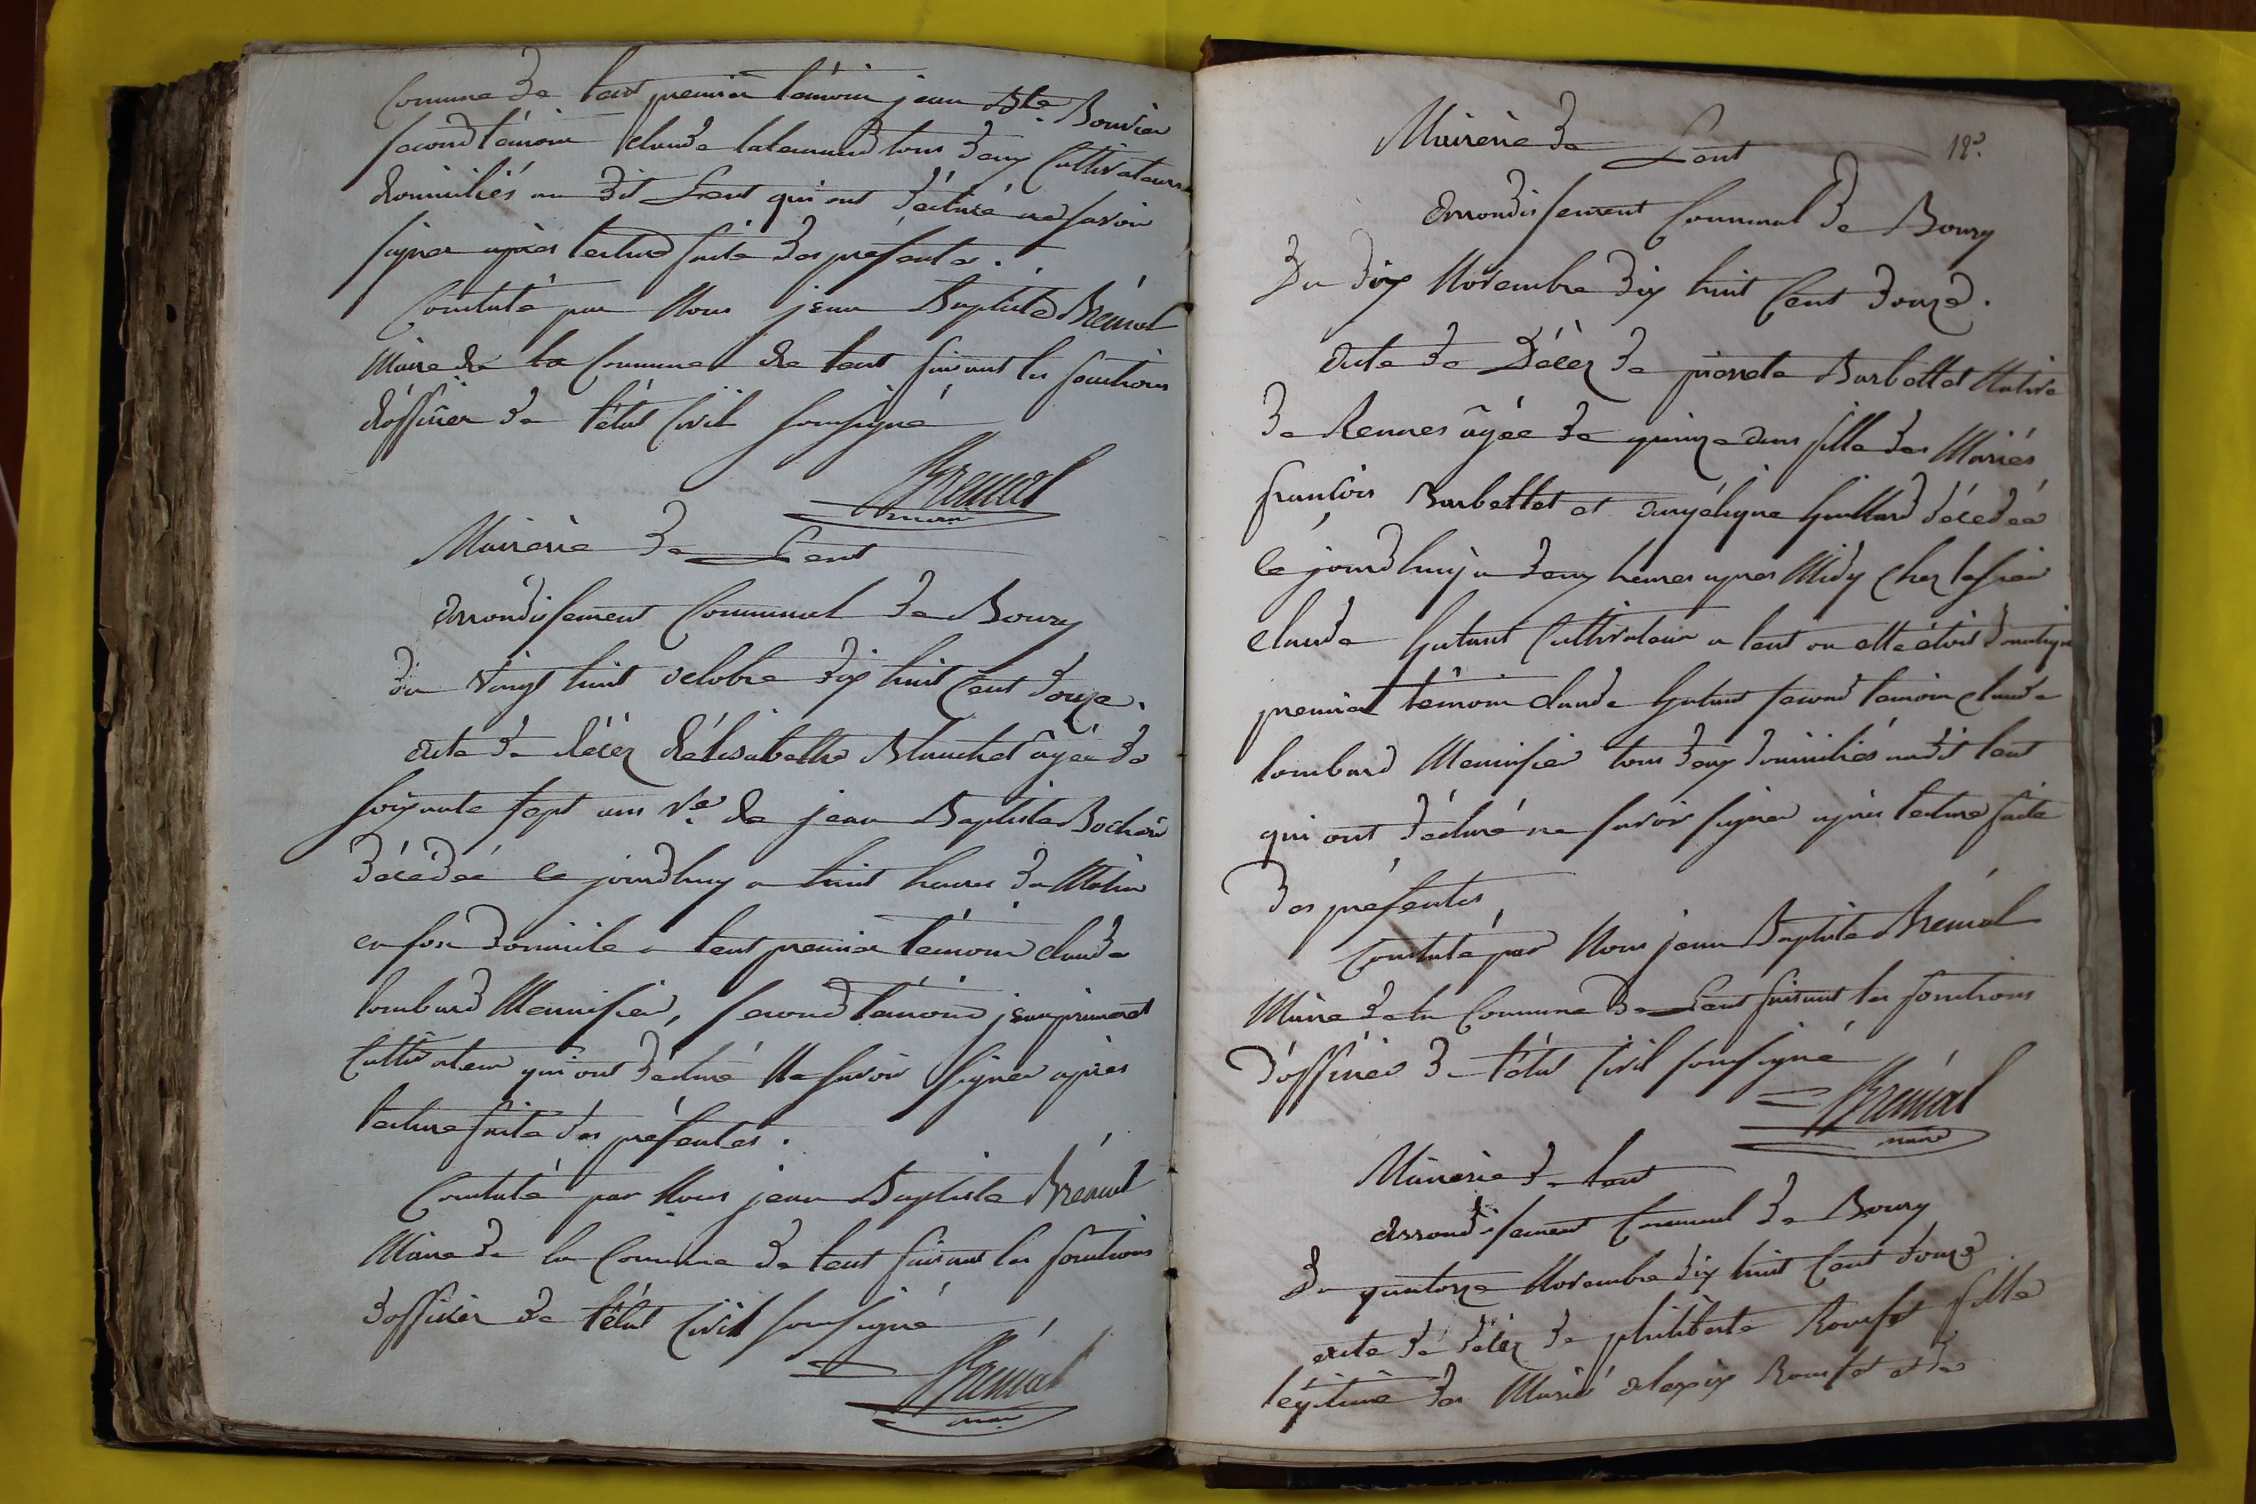 Commune de Lent premier témoin jean Bte. Bouvier
second témoin Claude lalemand tous deux Cultivateurs
domiciliés au dit Lent qui ont déclaré ne savoir
signer après lecture faite des présentes.
Constaté par Nous jean Baptiste Brémal
Maire de la Commune de Lent faisant les fonctions
d'officier de l'état Civil soussigné
Bremal
maire
Mairerie de Lent
Arrondissement Communal de Bourg
du vingt huit octobre dix huit Cent douze.
Acte de décez d'élisabethe Blanchet âgée de
soixante sept ans Ve. de jean Baptiste Bochard
décédée ce jourdhuy a huit heures du Matin
en son domicile a Lent premier témoin claude
lombard Menuisier, second témoin jean
Cultivateur qui ont déclaré Ne savoir signer après
lecture faite des présentes.
Constaté par Nous jean Baptiste Brémal
Maire de la Commune de Lent faisant les fonctions
d'officier de l'état Civil soussigné
Bremal
maire
Mairerie de Lent
Arrondissement Communal de Bourg
Du dix Novembre dix huit Cent douze.
Acte de Décez de pierrete Barbettet Native
de Rennes âgée de quinze ans fille des Mariés
françois Barbettet et angélique Guillard décédée
ce jourdhuy a deux heures apres Midy chez le sieur
claude Cultivateur a Lent ou elle étoit domestique
premier témoin claude second témoin claude
lombard Menuisier tous deux domiciliés audit Lent
qui ont déclaré ne savoir signer après lecture faite
des présentes
Constaté par Nous jean Baptiste Brémal
Maire de la Commune de Lent faisant les fonctions
d'officier de l'état Civil soussigné
Bremal
maire
Mairerie de Lent
Arrondissement Communal de Bourg
Du quatorze Novembre dix huit Cent douze
Acte de décez de philiberte Rousset fille
légitime des Mariés alexix Rousset et de